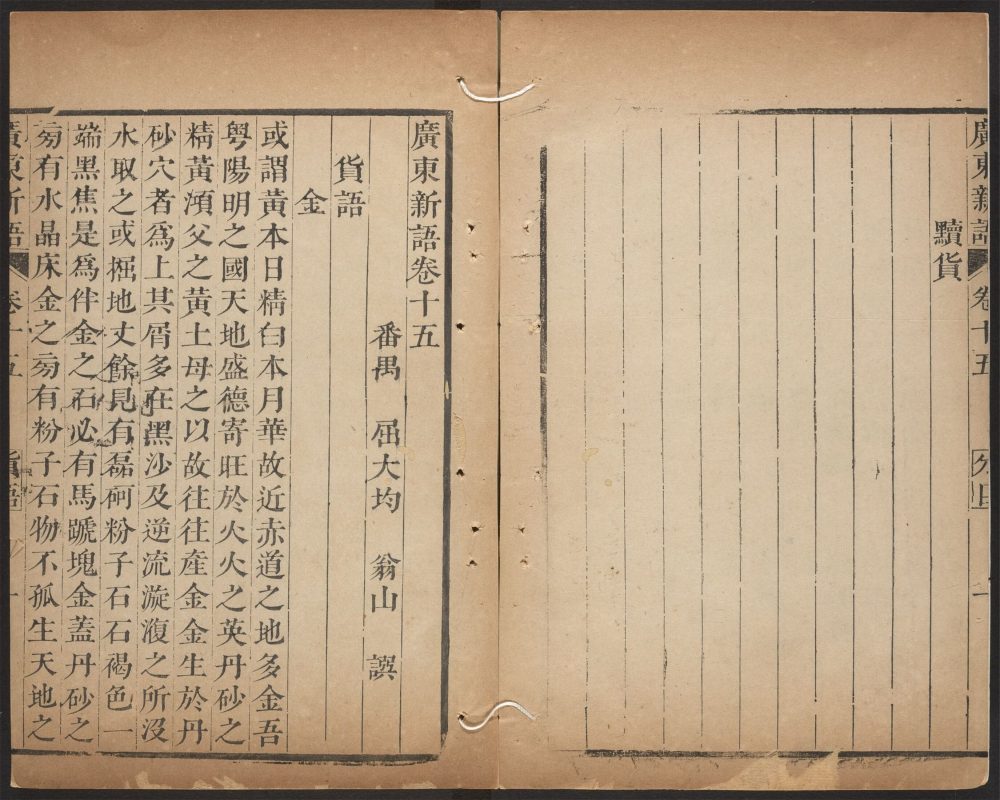 廣東新語 卷十五
黷貨
廣東新語卷十五
番禺 屈大均 翁山 譔
貨語
金
或謂黃本日精白本月華故近赤道之地多金吾
粵陽明之國天地盛德寄旺於火火之英丹砂之
精黃澒父之黃土母之以故往往產金金生於丹
砂穴者爲上其屑多在黑沙及逆流漩澓之所沒
水取之或掘地丈餘見有磊砢粉子石石褐色一
端黑焦是爲伴金之石必有馬蹏塊金蓋丹砂之
旁有水晶床金之旁有粉子石物不孤生天地之
廣東新語 卷十五 貨語 一